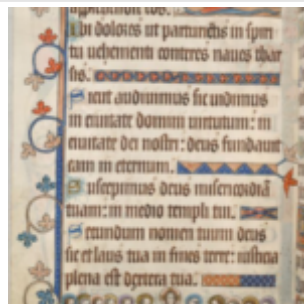 ibi dolores ut parturientis in spiri
tu uehementi conteres naues thar
sis.
Sicut audiuimus sic uidimus
in ciuitate domini uirtutum: in
ciuitate dei nostri: deus fundauit
eam in eternum.
Suscepimus deus misericordiā
tuam: in medio templi tui.
Secundum nomen tuum deus
sic et laus tua in fines terre: iusticia
plena est dextera tua.